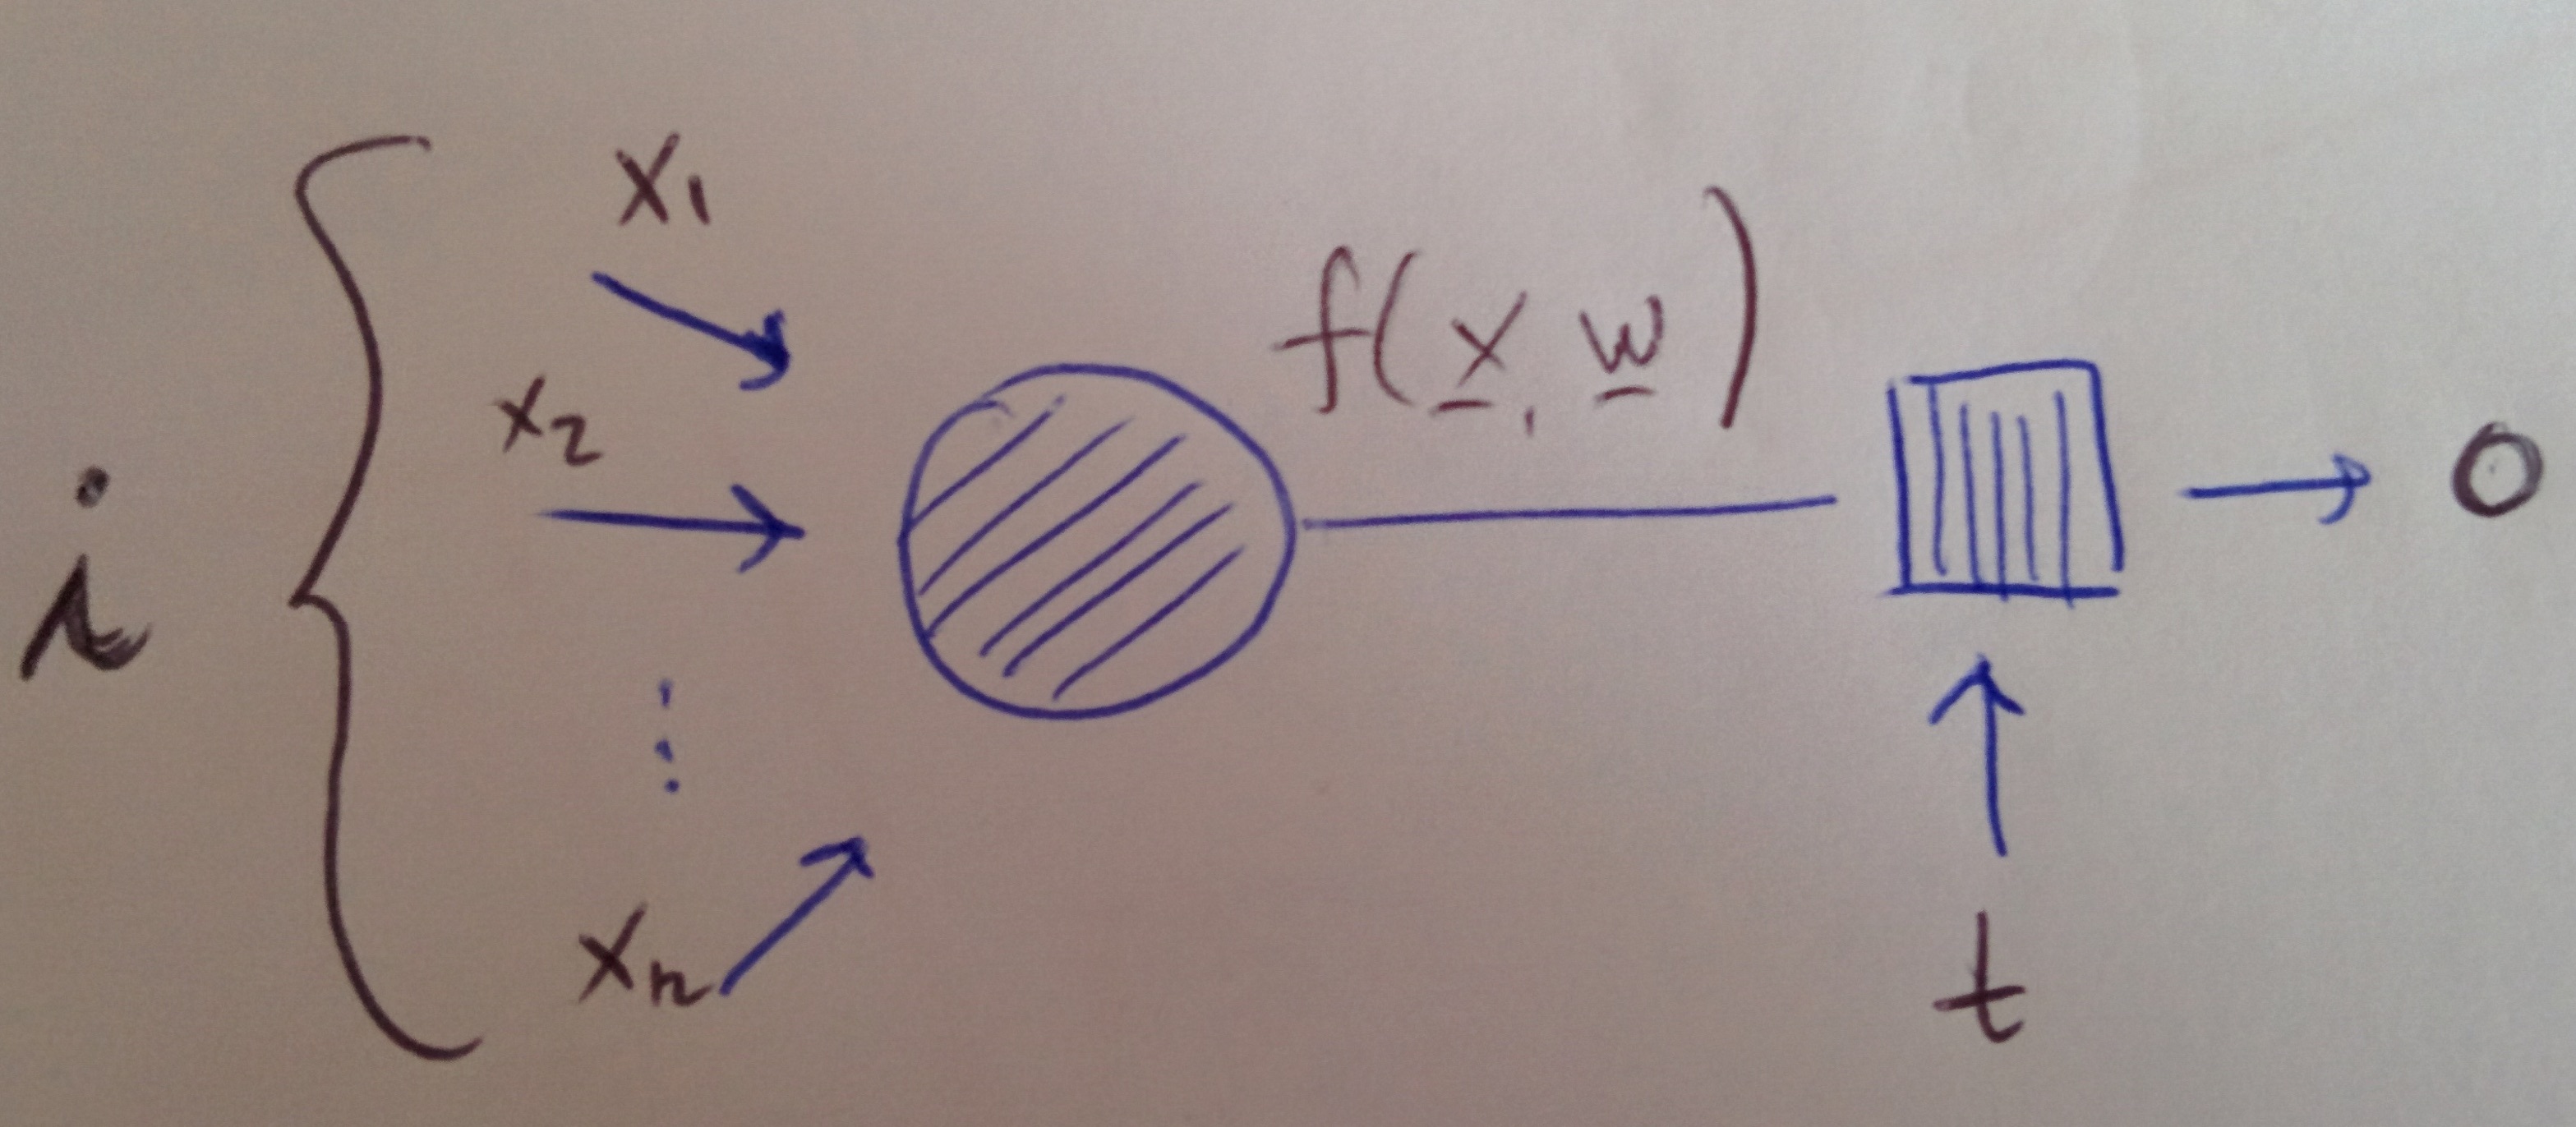 i
x1
x2
⋮
xn
f(x, w)
t
o